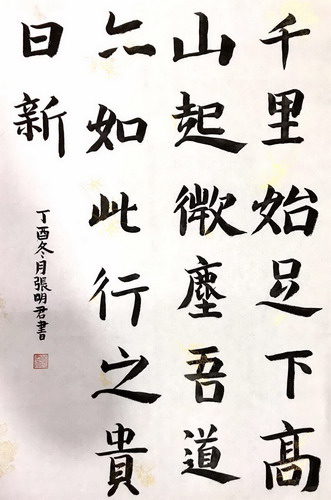 千里始足下高
山起微塵吾道
亦如此行之貴
日新
丁酉冬月張明君書